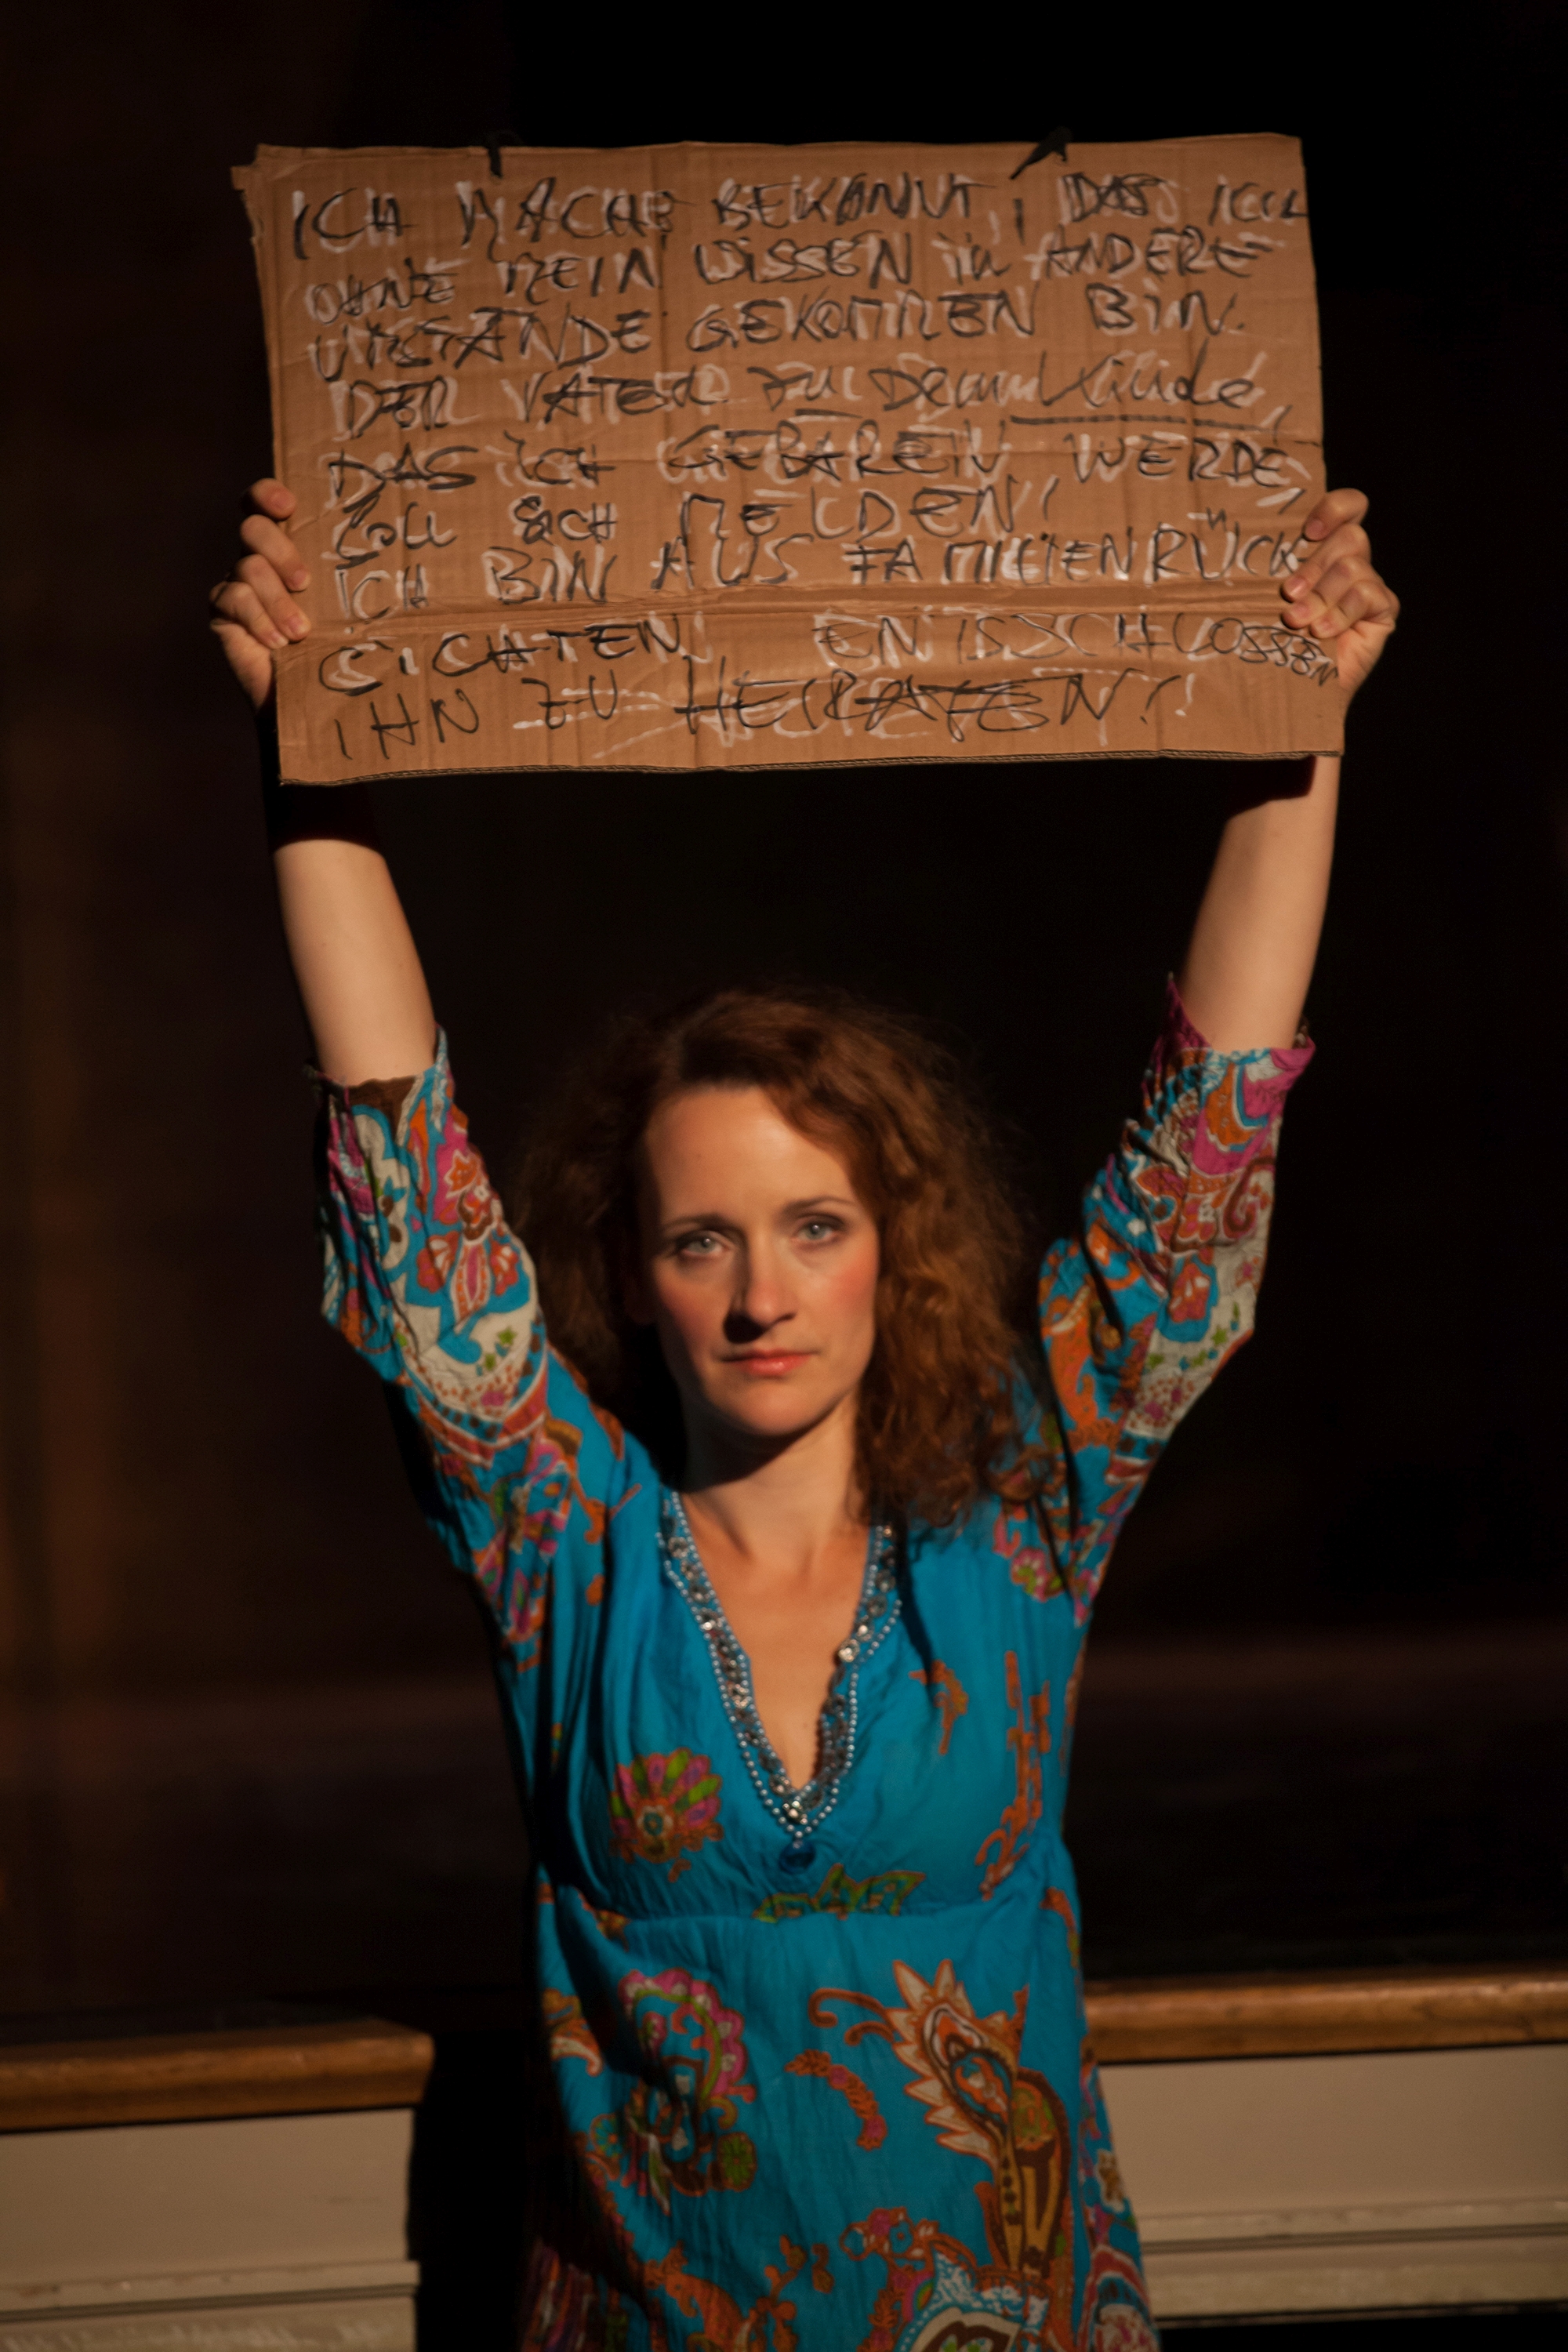 ICH MACHE BEKANNT, DAS ICH
OHNE MEIN WISSEN in ANDERE
UMSTÄNDE GEKOMMEN BIN.
DER VATER zu Dem Kinde,
DAS iCH GEBÄREN WERDE,
SOLL SICH MELDEN!
ICH BIN AUS FAMILIENRÜCK
SICHTEN ENTSCHLOSSEN
IHN ZU HEIRATEN!!